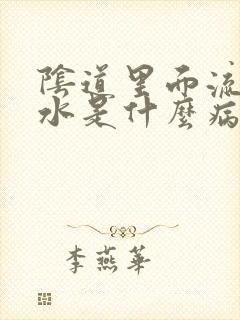 陰道里面流
水是什麼病
李燕華